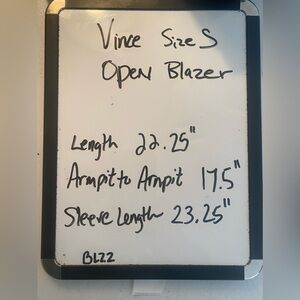 Vince Size S
Open Blazer
Length 22.25"
Armpit to Armpit 17.5"
Sleeve Length 23.25"
BLZ2